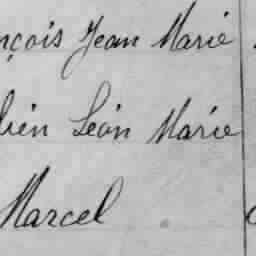 nçois Jean Marie
lien Léon Marie
Marcel